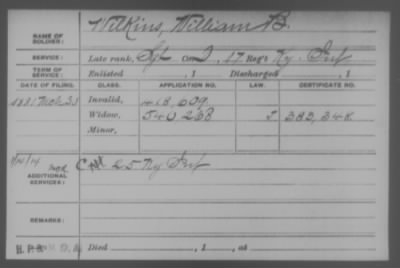 Wilkins, William B.
NAME OF SOLDIER:
SERVICE: Late rank, Sgt Co. D, 17 Reg't Ky. Inf
TERM OF SERVICE: Enlisted , 1 Discharged , 1
DATE OF FILING. CLASS. APPLICATION NO. LAW. CERTIFICATE NO.
1881 Mch 23 Invalid, 418,609
Widow, 540,268 383,348
Minor,
ADDITIONAL SERVICES: C 25 Ky Inf
REMARKS:
Died , 1 , at